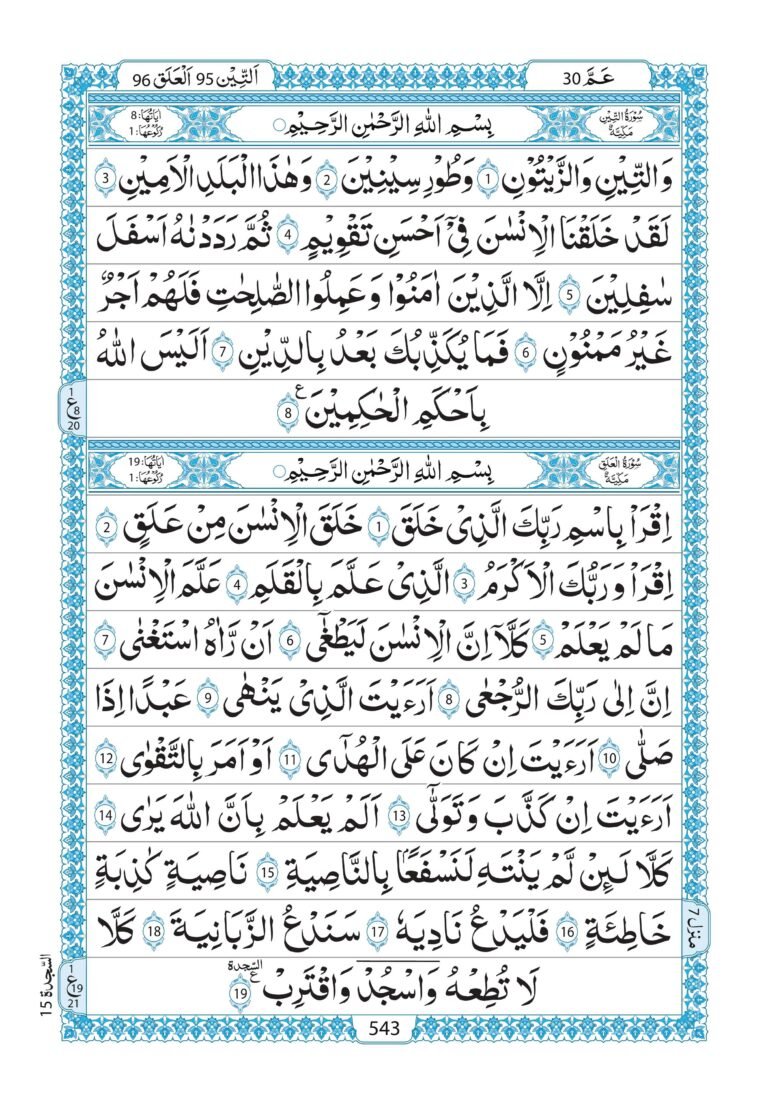 اَلتِّيْن 95 اَلْعَلَق 96
عَمَّ 30
سُوْرَةُ التِّيْنِ مَكِّيَّةٌ
بِسْمِ اللّٰهِ الرَّحْمٰنِ الرَّحِيْمِ
اٰيَاتُهَا: 8
رُكُوْعُهَا: 1
وَالتِّيْنِ وَالزَّيْتُوْنِ 1 وَطُوْرِ سِيْنِيْنَ 2 وَهٰذَا الْبَلَدِ الْاَمِيْنِ 3
لَقَدْ خَلَقْنَا الْاِنْسٰنَ فِيْۤ اَحْسَنِ تَقْوِيْمٍ 4 ثُمَّ رَدَدْنٰهُ اَسْفَلَ
سٰفِلِيْنَ 5 اِلَّا الَّذِيْنَ اٰمَنُوْا وَعَمِلُوا الصّٰلِحٰتِ فَلَهُمْ اَجْرٌ
غَيْرُ مَمْنُوْنٍ 6 فَمَا يُكَذِّبُكَ بَعْدُ بِالدِّيْنِ 7 اَلَيْسَ اللّٰهُ
بِاَحْكَمِ الْحٰكِمِيْنَ ع 8
1 ع 8 20
سُوْرَةُ الْعَلَقِ مَكِّيَّةٌ
بِسْمِ اللّٰهِ الرَّحْمٰنِ الرَّحِيْمِ
اٰيَاتُهَا: 19
رُكُوْعُهَا: 1
اِقْرَاْ بِاسْمِ رَبِّكَ الَّذِيْ خَلَقَ 1 خَلَقَ الْاِنْسٰنَ مِنْ عَلَقٍ 2
اِقْرَاْ وَرَبُّكَ الْاَكْرَمُ 3 الَّذِيْ عَلَّمَ بِالْقَلَمِ 4 عَلَّمَ الْاِنْسٰنَ
مَا لَمْ يَعْلَمْ 5 كَلَّاۤ اِنَّ الْاِنْسٰنَ لَيَطْغٰۤى 6 اَنْ رَّاٰهُ اسْتَغْنٰى 7
اِنَّ اِلٰى رَبِّكَ الرُّجْعٰى 8 اَرَءَيْتَ الَّذِيْ يَنْهٰى 9 عَبْدًا اِذَا
صَلّٰى 10 اَرَءَيْتَ اِنْ كَانَ عَلَى الْهُدٰۤى 11 اَوْ اَمَرَ بِالتَّقْوٰى 12
اَرَءَيْتَ اِنْ كَذَّبَ وَتَوَلّٰى 13 اَلَمْ يَعْلَمْ بِاَنَّ اللّٰهَ يَرٰى 14
كَلَّا لَىِٕنْ لَّمْ يَنْتَهِ لَنَسْفَعًۢا بِالنَّاصِيَةِ 15 نَاصِيَةٍ كٰذِبَةٍ
خَاطِئَةٍ 16 فَلْيَدْعُ نَادِيَهٗ 17 سَنَدْعُ الزَّبَانِيَةَ 18 كَلَّا
مَنْزِل 7
لَا تُطِعْهُ وَاسْجُدْ وَاقْتَرِبْ السَّجدة ع 19
1 ع 19 21
السَّجدة 15
543